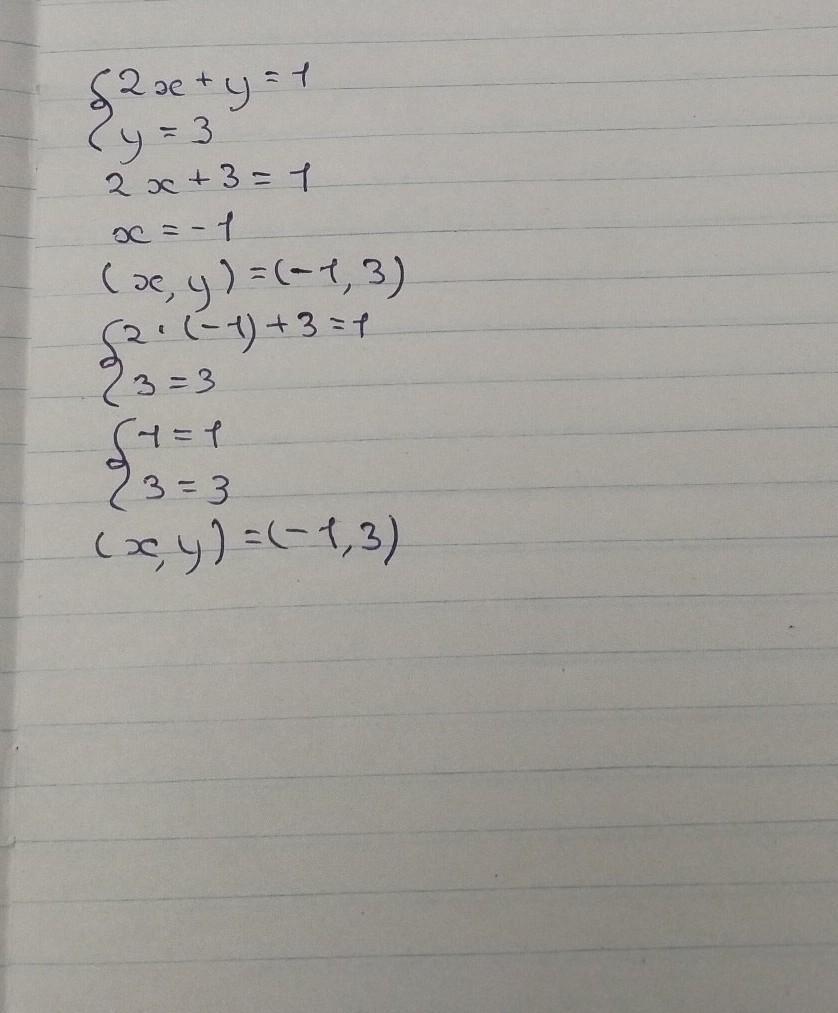 {2x + y = 1
y = 3
2x + 3 = 1
x = -1
(x, y) = (-1, 3)
{2 · (-1) + 3 = 1
3 = 3
{1 = 1
3 = 3
(x, y) = (-1, 3)